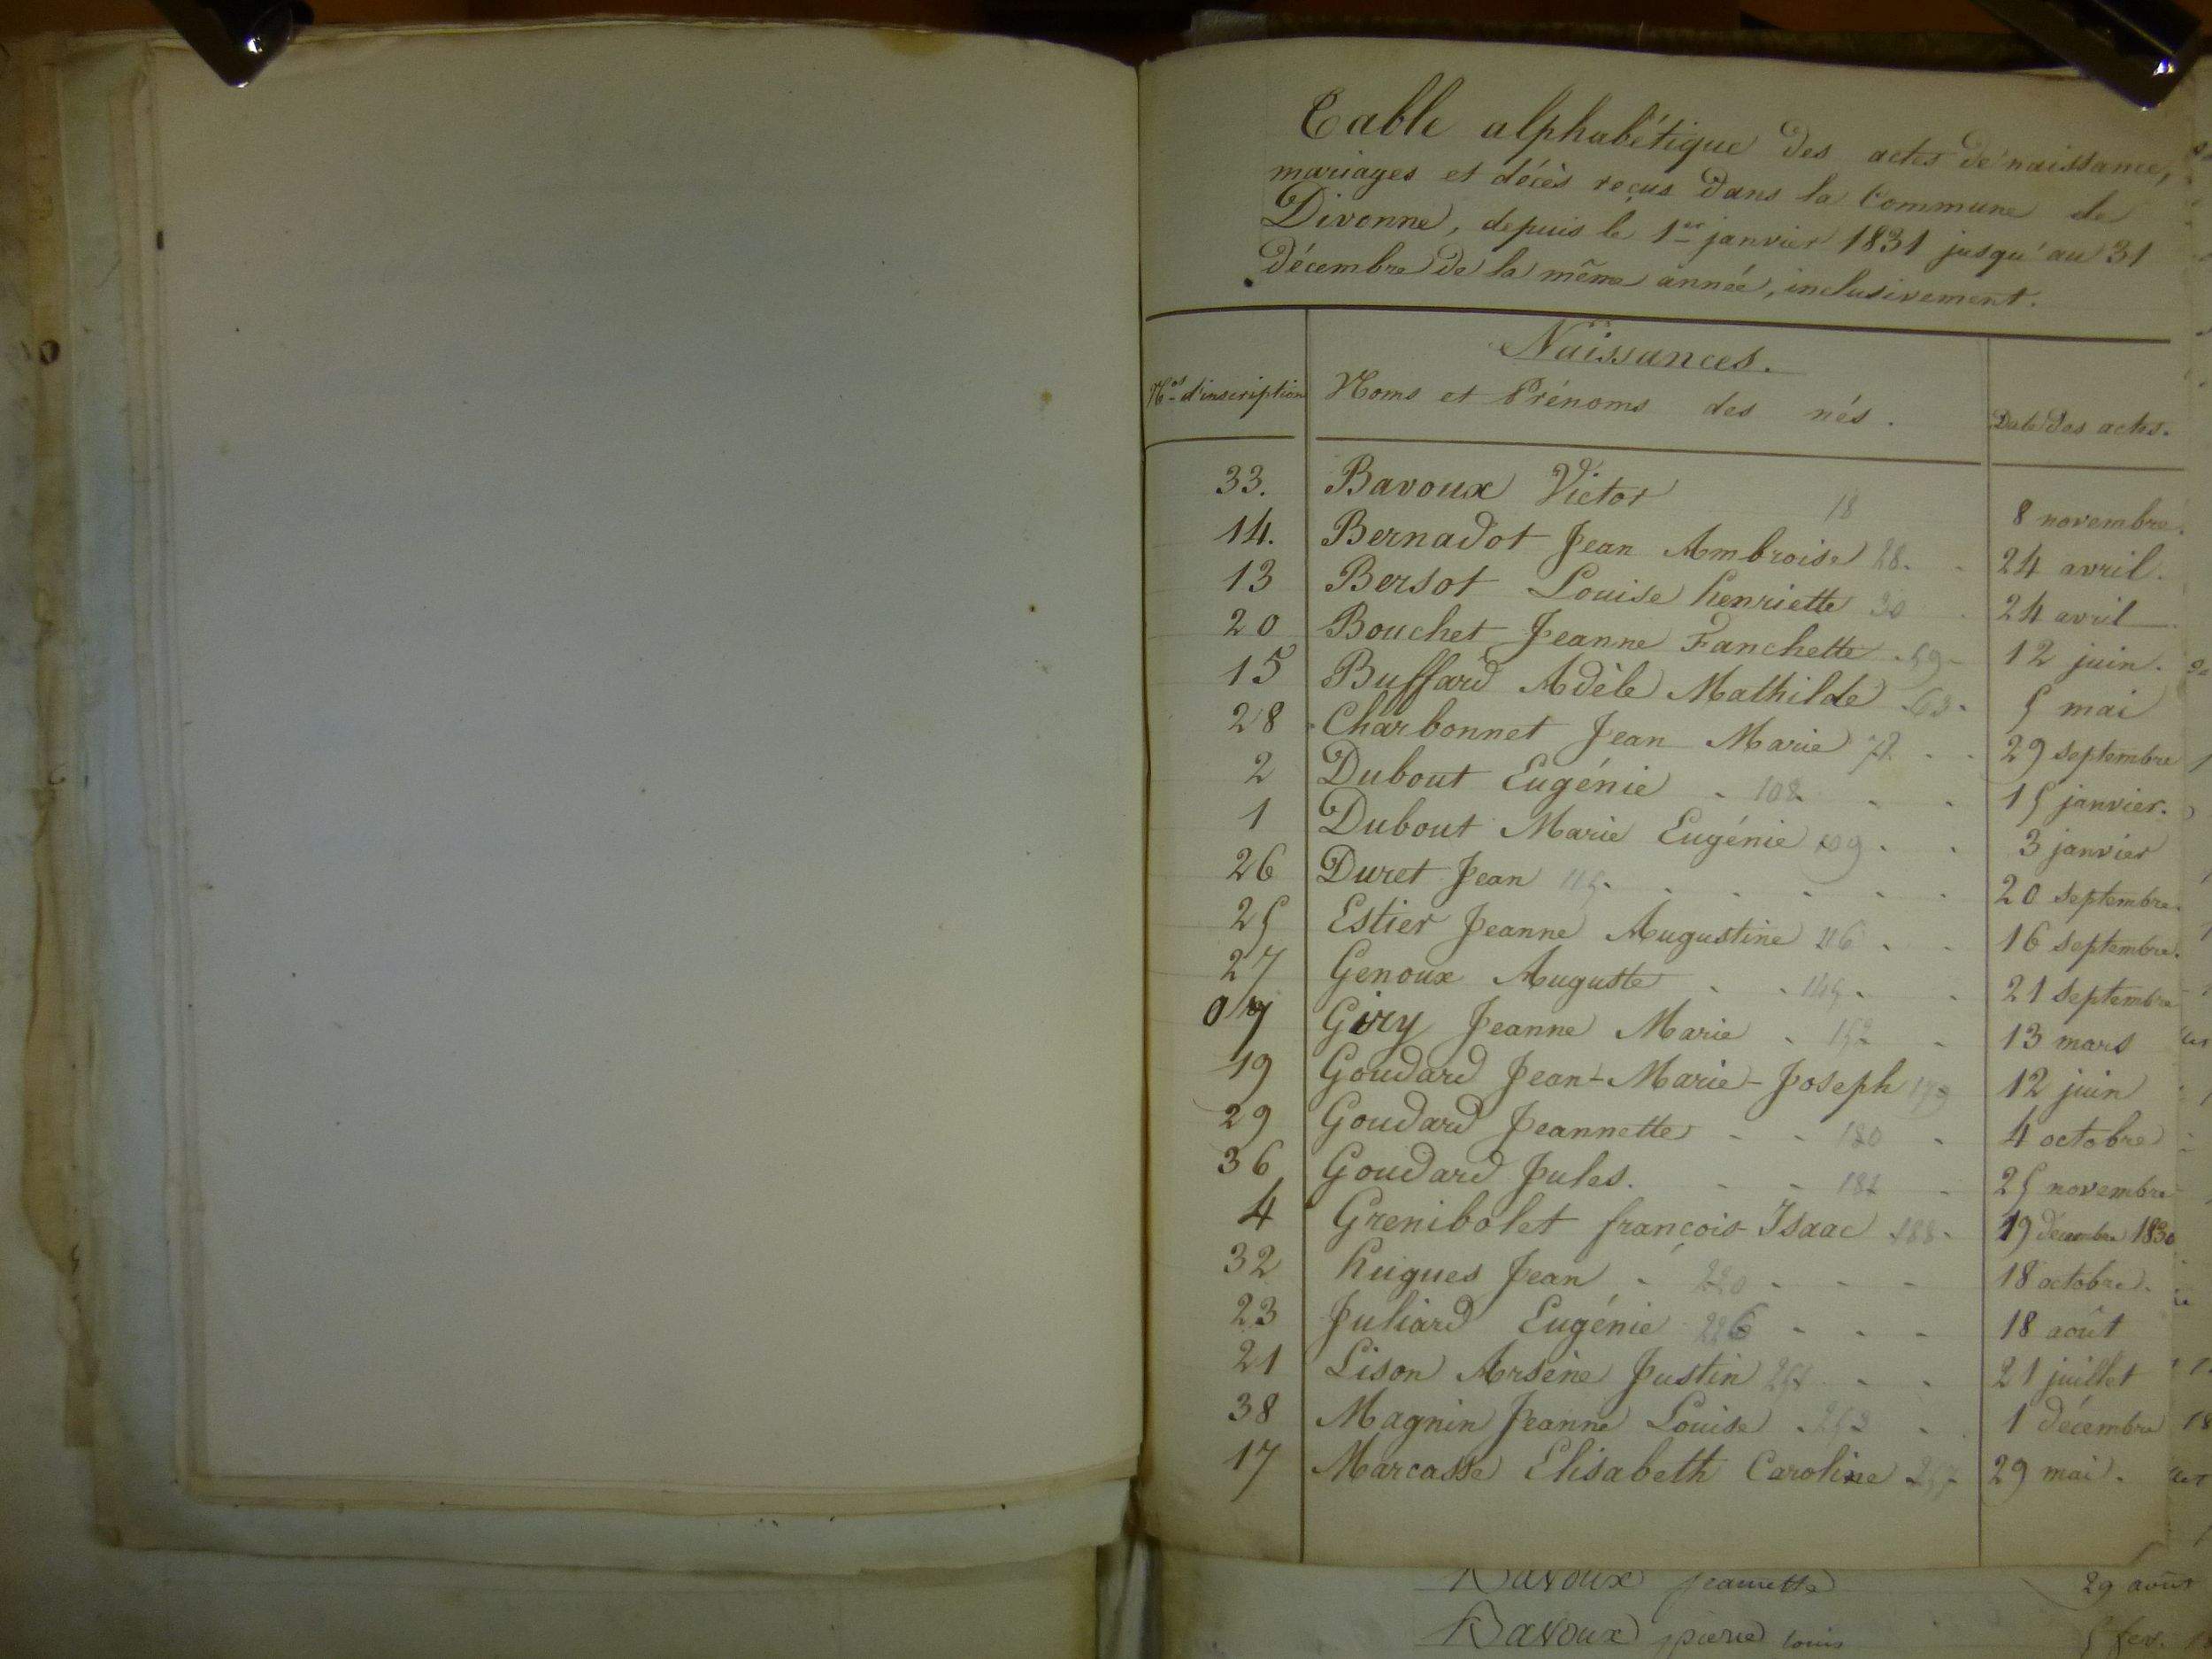 Table alphabétique des actes de naissance,
mariages et décès reçus dans la Commune de
Divonne, depuis le 1er janvier 1831 jusqu'au 31
décembre de la même année, inclusivement.
Naissances.
Nos d'inscription Noms et Prénoms des nés. Date des actes.
33. Bavoux Victor 18 8 novembre.
14. Bernadot Jean Ambroise 28. 24 avril.
13 Bersot Louise henriette 30 24 avril
20 Bouchet Jeanne Fanchette 59 12 juin.
15 Buffard Adèle Mathilde 63 5 mai
28 Charbonnet Jean Marie 29 septembre
2 Dubout Eugénie 108 15 janvier.
1 Dubout Marie Eugénie 109 3 janvier
26 Duret Jean 115 20 septembre.
25 Estier Jeanne Augustine 116 16 septembre.
27 Genoux Auguste 145 21 septembre
07 Giry Jeanne Marie 152 13 mars
19 Goudard Jean-Marie-Joseph 179 12 juin
29 Goudard Jeannette 180 4 octobre
36 Goudard Jules. 182 25 novembre
4 Grenibolet françois Isaac 188 19 décembre 1830
32 hugues Jean 220 18 octobre.
23 Juliard Eugénie 226 18 août
21 Lison Arsène Justin 21 juillet
38 Magnin Jeanne Louise 253 1 décembre
17 Marcasse Elisabeth Caroline 257 29 mai.
Bavoux jeannette 29 août
Bavoux pierre louis 5 fev.